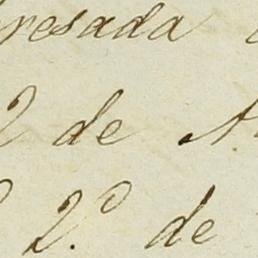 resada
2 de
2.º de